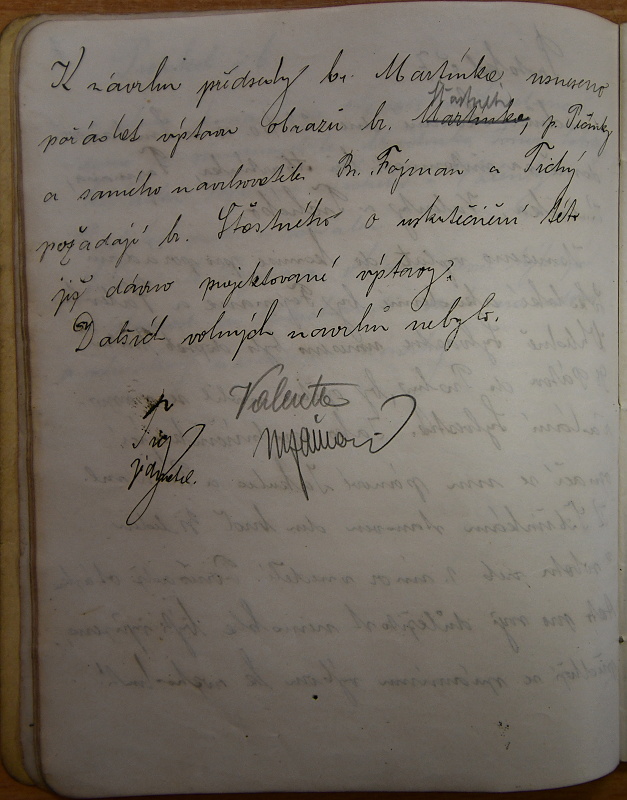 K návrhu předsedy br. Martínka usneseno
pořádat výstavu obrazů br. Šťastného Martínka, p. Pičmky
a samého navrhovatele. Br. Fojman a Tichý
požádají br. Šťastného o uskutečnění této
již dávno projektované výstavy.
Dalších volných návrhů nebylo.
Valenta